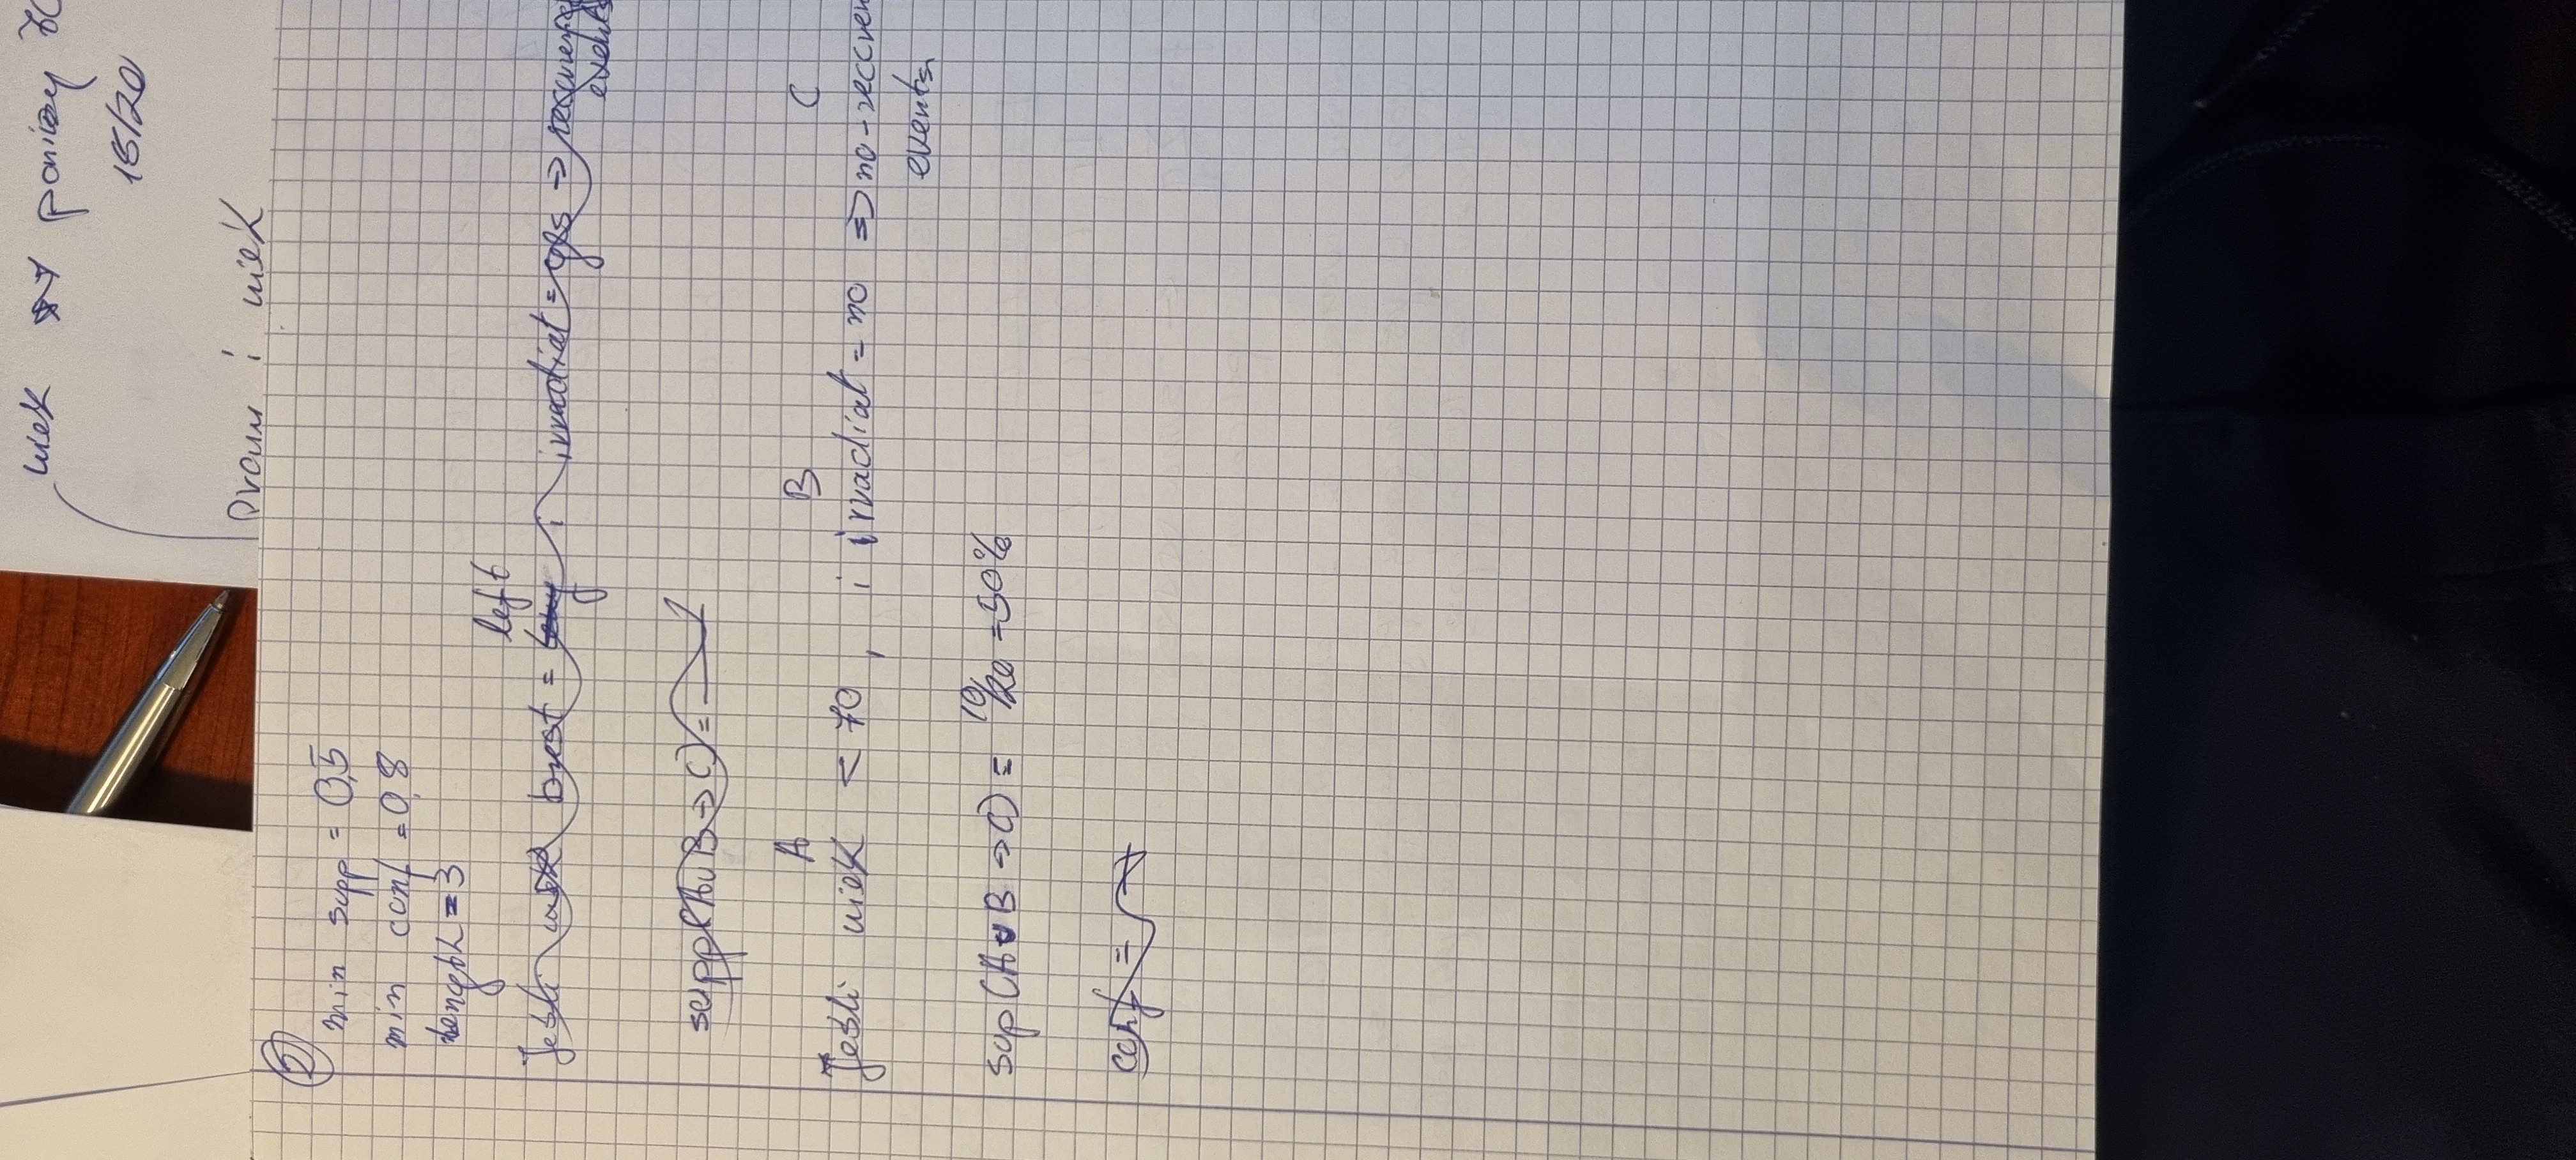 wiek poniżej 70
18/20
prawy i wiek
2
min supp = 0,5
min conf = 0,8
length = 3
left
Jeśli wiek brest = i irradiat = yes => recurence
events
supp(A∪B → C) =
A B C
Jeśli wiek < 70 , i irradiat = no => no-reccuren
events
sup(A∪B → C) = 10/20 = 50%
conf =